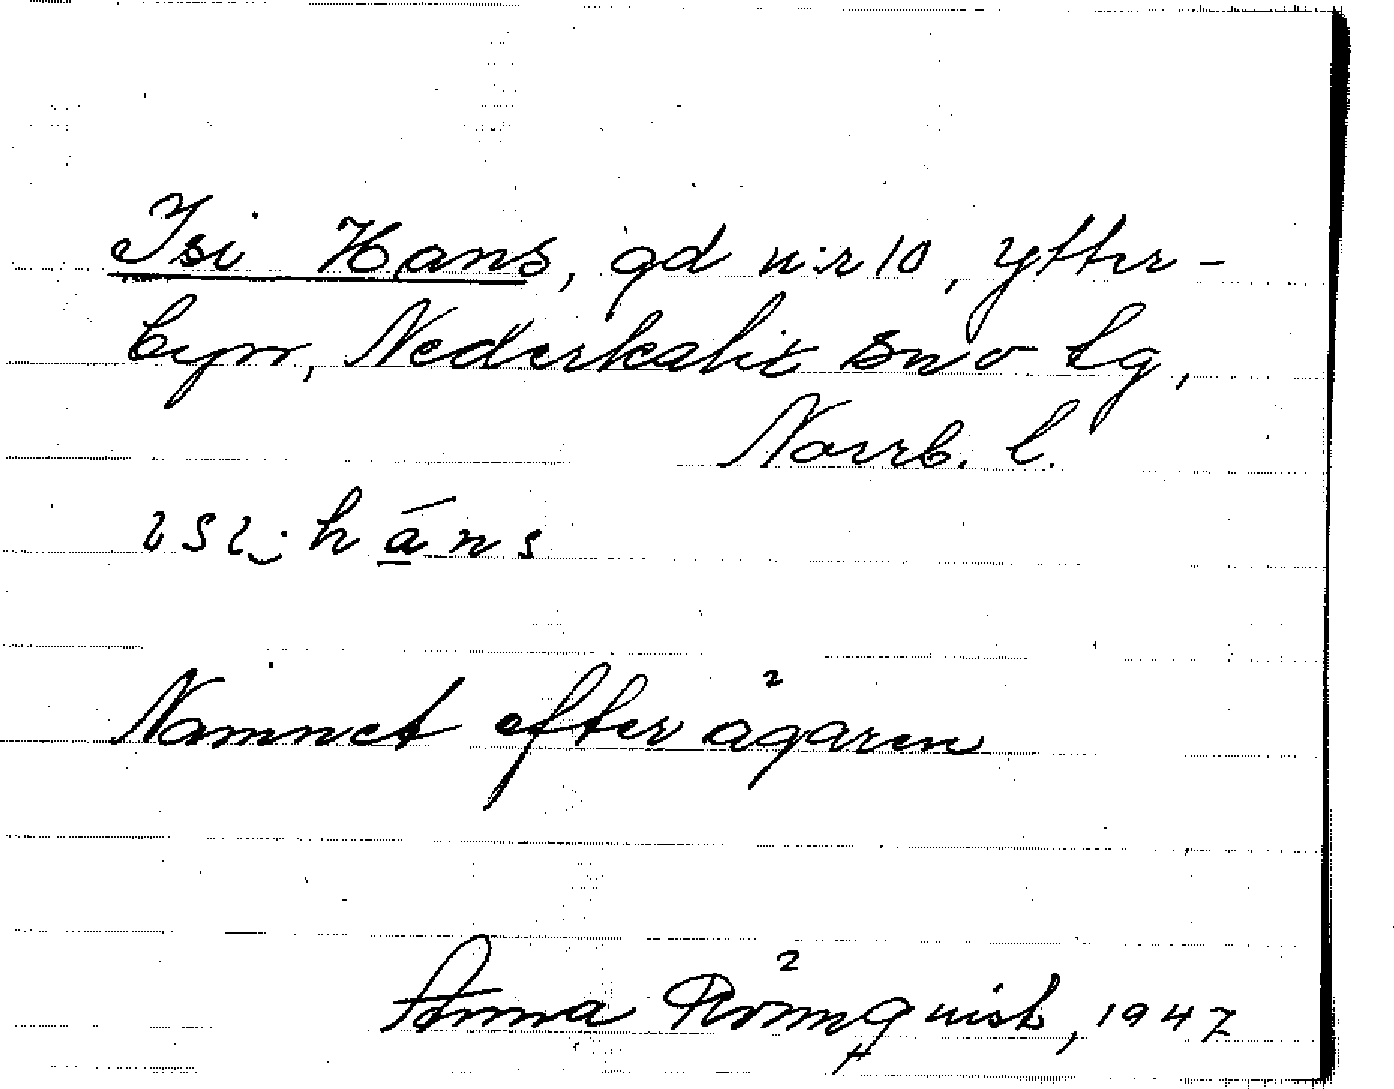 Isi Hans, gd n:r 10, Ytter-
byn, Nederkalix sn o tg,
Norrb. l.
ɩsɩ‿háns
Namnet efter ägaren
Anna Römquist, 1947